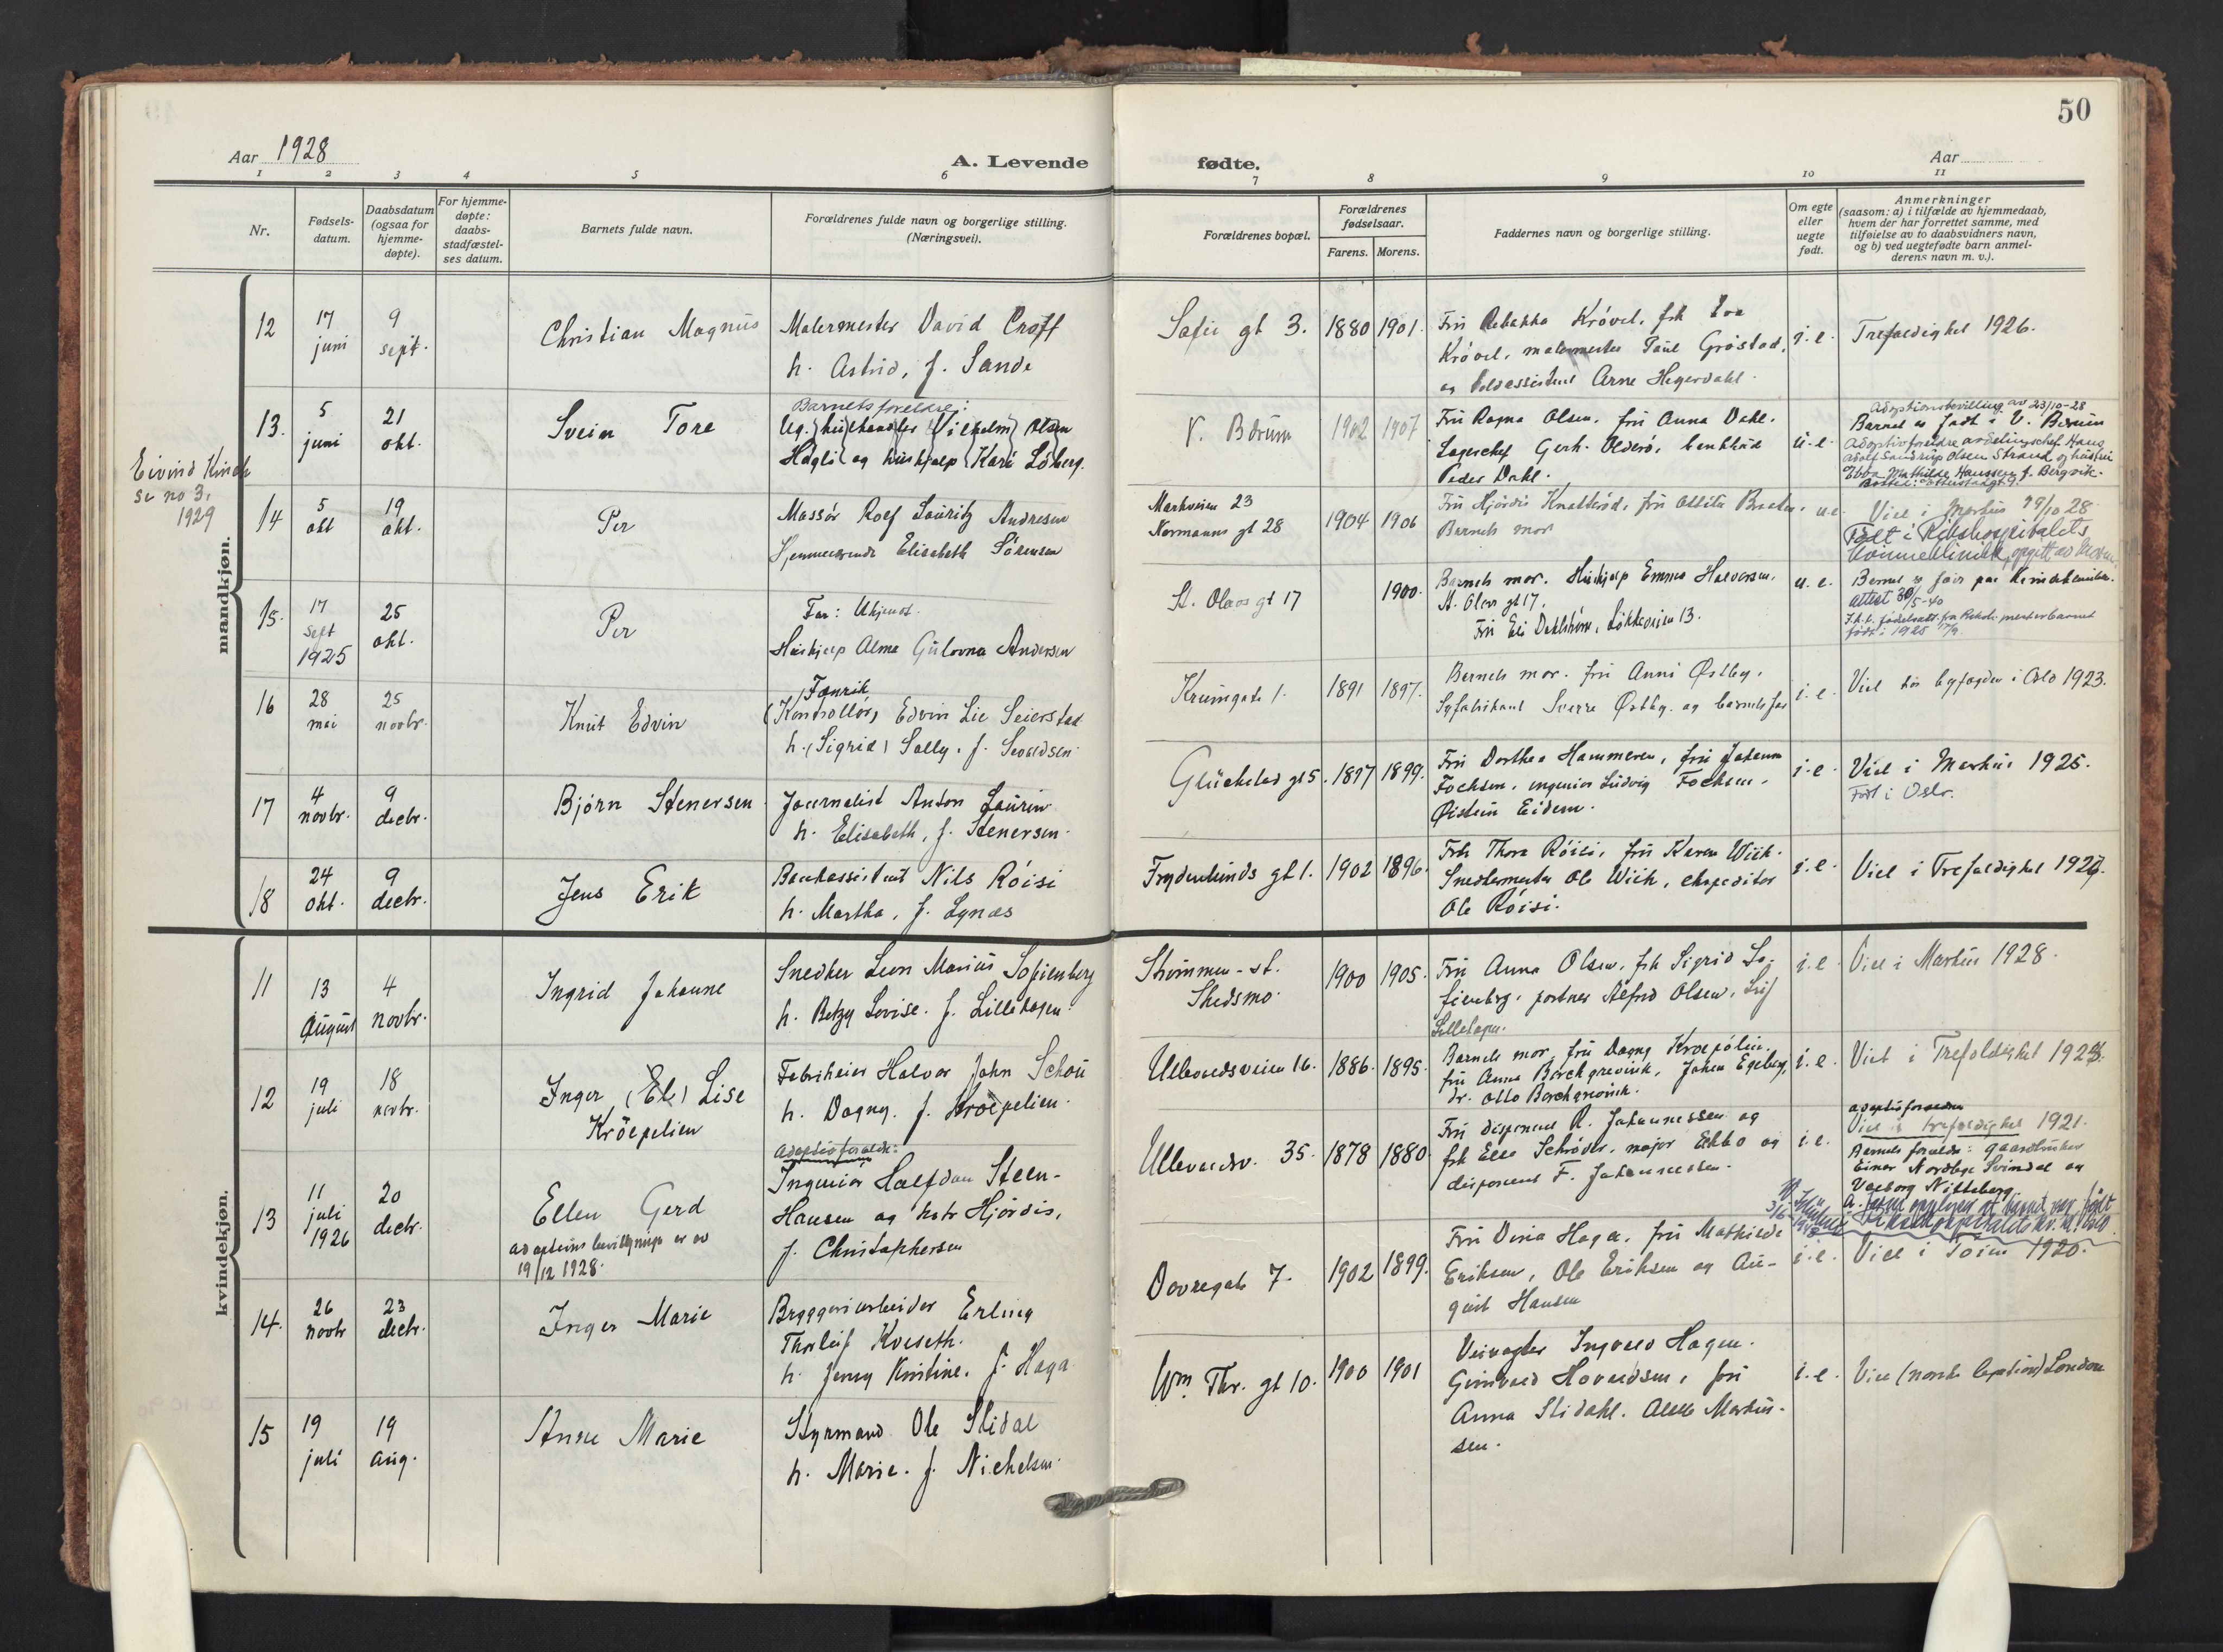 50
Aar 1928
A. Levende
fødte.
Aar
1 2 3 4 5 6 7 8 9 10 11
Nr.
Fødsels-
datum.
Daabsdatum
(ogsaa for
hjemme-
døpte).
For hjemme-
døpte:
daabs-
stadfæstel-
ses datum.
Barnets fulde navn.
Forældrenes fulde navn og borgerlige stilling.
(Næringsvei).
Forældrenes bopæl.
Forældrenes
fødselsaar.
Farens. Morens.
Faddernes navn og borgerlige stilling.
Om egte
eller
uegte
født.
Anmerkninger
(saasom: a) i tilfælde av hjemmedaab,
hvem der har forrettet samme, med
tilføielse av to daabsvidners navn,
og b) ved uegtefødte barn anmel-
derens navn m. v.).
mandkjøn.
12
17
juni
9
sept.
Christian Magnus
Malermester David Croff
h. Astrid, f. Sande
Sofie gt 3.
1880 1901.
Fru Rebekka Krøvel, frk
Krøvel, malermester Paul Grøstad,
og Arne Hegerdahl.
i. e.
Trefoldighet 1926.
Eivind
se no 3,
1929
13.
5
juni
21
okt.
Svein Tore
Barnets foreldre:
Ug. Vilhelm Olsen
Hagli og hushjelp Kari Løberg.
V. Bærum
1902 1907
Fru Ragna Olsen, fru Anna Dahl,
Lagerchef Gerh.
Peder Dahl.
u. e.
Adoptionsbevilling av 23/10-28
Barnet er født i V. Bærum
Adoptivforeldre avdelingschef Hans
Adolf Sandrup Olsen Strand og hustru
Ebba Mathilde Hanssen f. Bergvik.
14
5
okt
19
okt.
Per
Massør Rolf Lauritz Andresen
Hjemmeværende Elisabeth Sørensen
Markveien 23
Normanns gt 28
1904 1906
Fru Hjørdis Knatterød, fru Ottilia
Barnets mor
u. e.
Viet i Markus 19/10 28
Født i Rikshospitalets
Kvinneklinikk, opgitt av
15.
17
sept
1925
25
okt.
Per
Far: Ukjent.
Hushjelp Alma Gulovna Andersen
St. Olavs gt 17
1900.
Barnets mor. Hushjelp Emma Halvorsen,
St. Olavs gt 17.
Fru Eli Dahlstrøm, Løkkeveien 13.
u. e.
Barnet er født paa Kvindeklinikken.
attest 30/5-40
født i 1925
16
28
mai
25
novbr.
Knut Edvin
Fænrik
(Kontrollør) Edvin Lie Seierstad
h. (Sigrid) Solly. f. Sevaldsen.
Krumgata 1.
1891 1897.
Barnets mor. fru Anni Østby.
Syfabrikant Sverre Østby. og barnets far
i. e.
Viet hos byfogden i Oslo 1923.
17
4
novbr.
9
decbr.
Bjørn Stenersen
Journalist Anton Laurin
h. Elisabeth, f. Stenersen.
Glückstad gt 5.
1897 1899.
Fru Dorthea Hammeren, fru Johanna
Fochsen, ingeniør Ludvig Fochsen.
Øistein Eidem.
i. e.
Viet i Markus 1925.
Født i Oslo.
18
24
okt.
9
decbr.
Jens Erik
Bankassistent Nils Røisi
h. Martha, f. Lynæs
Frydenlunds gt 1.
1902 1896.
Frk Thora Røisi, fru Karen Wiik.
Snedkermester Ole Wiik, ekspeditør
Ole Røisi.
i. e.
Viet i Trefoldighet 1927.
kvindekjøn.
11
13
August
4
novbr.
Ingrid Johanne
Snedker Leon Marius Sofienberg
h. Betzy Lovise. f. Lillehagen.
Strømmen-st.
Skedsmo
1900 1905.
Fru Anna Olsen, frk Sigrid So-
fienberg, portner Alfred Olsen, Leif
Lillehagen.
i. e.
Viet i Markus 1928.
12
19
juli
18
novbr.
Inger (El) Lise
Krøepelien
Fabrikeier Halvor John Schou
h. Dagny. f. Kroepelien.
Ullevaalsveien 16.
1886. 1895.
Barnets mor, fru Dagny Kroepelien.
fru Anna Borchgrevink, Johan Egeberg,
dr. Otto Borchgrevink.
i. e.
Viet i Trefoldighet
13
11
juli
1926
20
decbr.
Ellen Gerd
adoptions bevillgning er av
19/12 1928.
Adoptivforældre:
Ingeniør Halfdan Steen-
Hansen og hstr Hjørdis,
f. Christophersen
Ullevaalsv. 35.
1878 1880
Fru disponent R. Johannessen og
frk Ella Schrøder, major Ebbo og
disponent F. Johannessen.
i. e.
adoptivforældre
Viet i trefoldighet 1921.
Barnets foreldre: gaardbruker
Einar Nordbye Svindal og
Valborg Nitteberg
14.
26
novbr
23
decbr.
Inger Marie
Bryggeriarbeider Erling
Thorleif Kveseth.
h. Jenny Kristine. f. Haga
Dovregata 7.
1902 1899.
Fru Dina Haga, fru Mathilde
Eriksen, Ole Eriksen og Au-
gust Hansen
i. e.
Viet i Tøien 1920.
15
19
juli
19
aug.
Anne Marie
Styrmand Ole Slidal
h. Marie. f. Nickelsen.
Wm. Thr. gt 10.
1900 1901
Veivogter Ingvald Hagen.
Hovaldsen, fru
Anna Slidahl. Martin-
sen.
i. e.
Viet (norsk legation) London